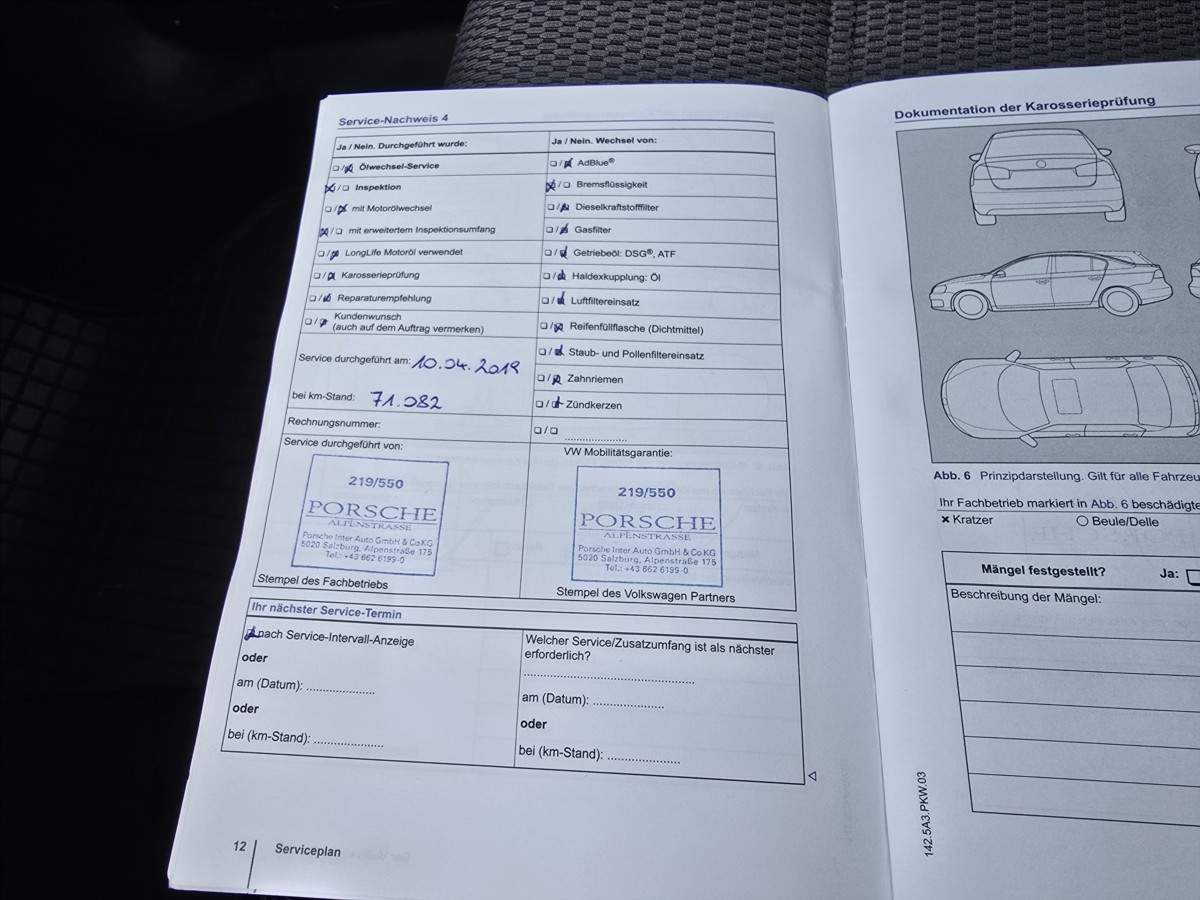 Service-Nachweis 4
Ja / Nein. Durchgeführt wurde:
☐/☒ Ölwechsel-Service
☒/☐ Inspektion
☐/☒ mit Motorölwechsel
☒/☐ mit erweitertem Inspektionsumfang
☐/☒ LongLife Motoröl verwendet
☐/☒ Karosserieprüfung
☐/☒ Reparaturempfehlung
☐/☒ Kundenwunsch
(auch auf dem Auftrag vermerken)
Service durchgeführt am: 10.04.2019
bei km-Stand: 71.082
Rechnungsnummer:
Service durchgeführt von:
219/550
PORSCHE
ALPENSTRASSE
Porsche Inter Auto GmbH & Co KG
5020 Salzburg, Alpenstraße 175
Tel.: +43 662 6199-0
Stempel des Fachbetriebs
Ja / Nein. Wechsel von:
☐/☒ AdBlue®
☒/☐ Bremsflüssigkeit
☐/☒ Dieselkraftstofffilter
☐/☒ Gasfilter
☐/☒ Getriebeöl: DSG®, ATF
☐/☒ Haldexkupplung: Öl
☐/☒ Luftfiltereinsatz
☐/☒ Reifenfüllflasche (Dichtmittel)
☐/☒ Staub- und Pollenfiltereinsatz
☐/☒ Zahnriemen
☐/☒ Zündkerzen
☐/☐ ....................
VW Mobilitätsgarantie:
219/550
PORSCHE
ALPENSTRASSE
Porsche Inter Auto GmbH & Co KG
5020 Salzburg, Alpenstraße 175
Tel.: +43 662 6199-0
Stempel des Volkswagen Partners
Ihr nächster Service-Termin
☒ nach Service-Intervall-Anzeige
oder
am (Datum): ....................
oder
bei (km-Stand): ....................
Welcher Service/Zusatzumfang ist als nächster
erforderlich?
..................................................
am (Datum): ....................
oder
bei (km-Stand): ....................
12 Serviceplan
Dokumentation der Karosserieprüfung
Abb. 6 Prinzipdarstellung. Gilt für alle Fahrzeu
Ihr Fachbetrieb markiert in Abb. 6 beschädigte
× Kratzer ○ Beule/Delle
Mängel festgestellt? Ja: ☐
Beschreibung der Mängel:
142.5A3.PKW.03